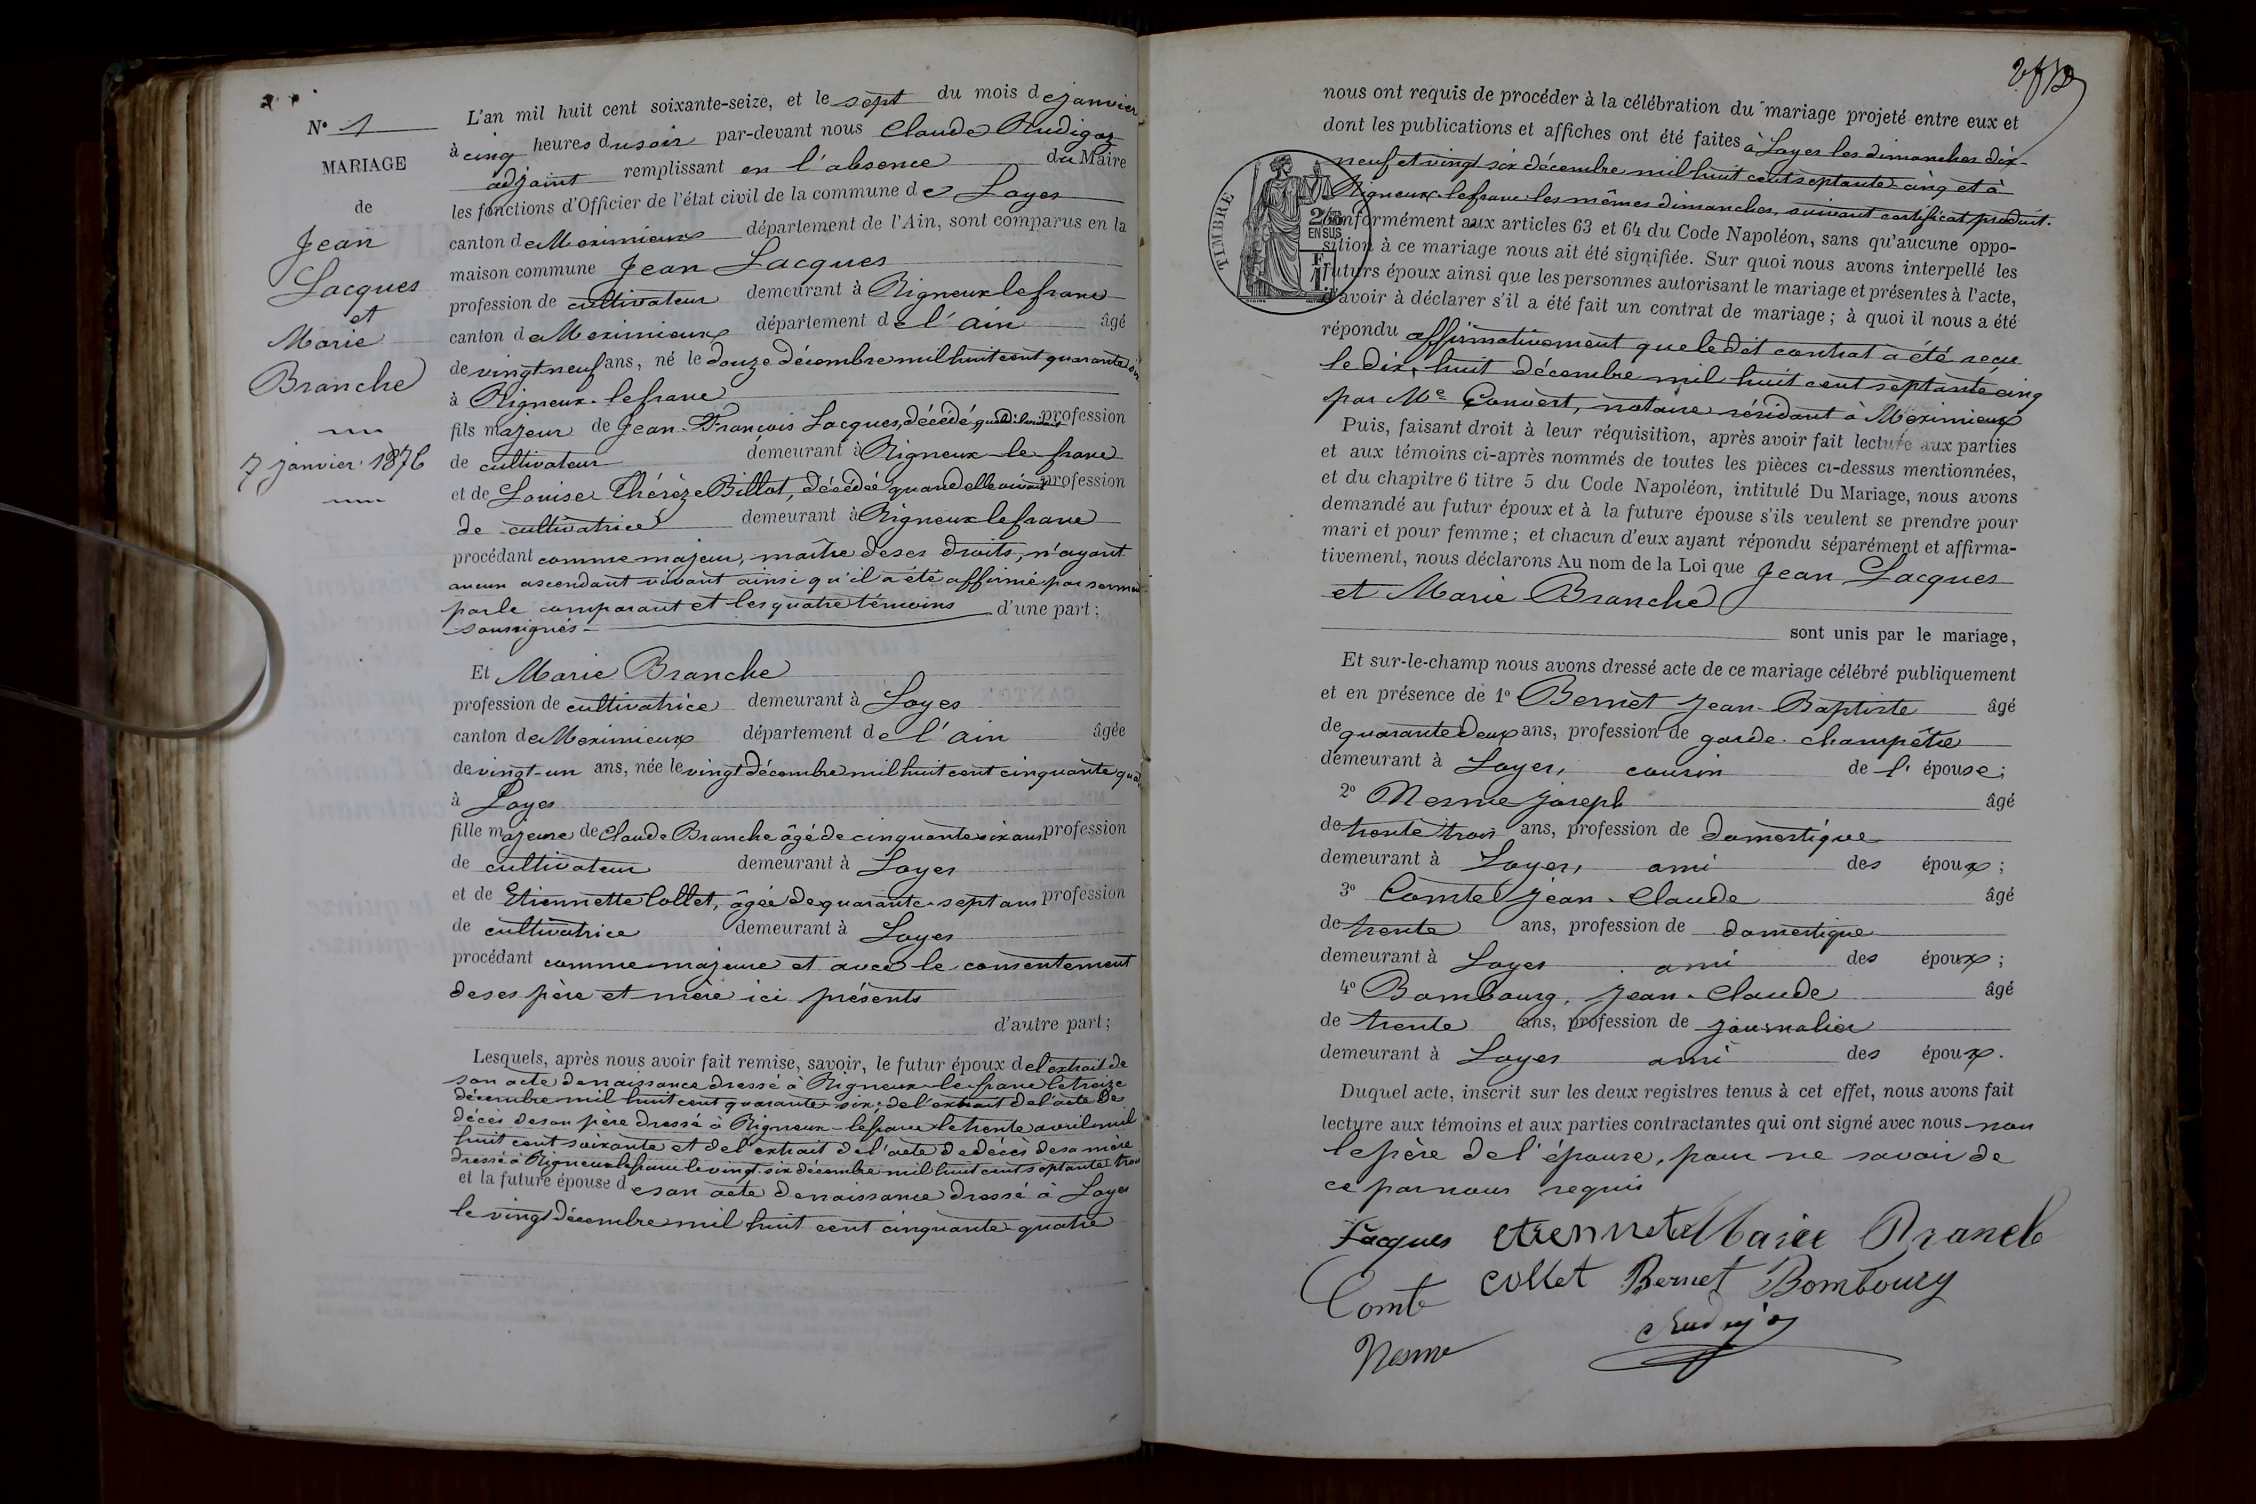 N° 1
MARIAGE
de
Jean
Jacques
et
Marie
Branche
7 janvier 1876
L'an mil huit cent soixante-seize, et le sept du mois de janvier
à cinq heures du soir par-devant nous Claude Rudigoz
adjoint remplissant en l'absence du Maire
les fonctions d'Officier de l'état civil de la commune de Loyes
canton de Meximieux département de l'Ain, sont comparus en la
maison commune Jean Jacques
profession de cultivateur demeurant à Rigneux le franc
canton de Meximieux département de l'ain âgé
de vingt neuf ans, né le douze décembre mil huit cent quarante six
à Rigneux-le franc
fils majeur de Jean-François Jacques, décédé quand il vivait profession
de cultivateur demeurant à Rigneux-le franc
et de Louise Thérèze Billot, décédée quand elle vivait profession
de cultivatrice demeurant à Rigneux le franc
procédant comme majeur, maître de ses droits, n'ayant
aucun ascendant vivant ainsi qu'il a été affirmé par serment
par le comparant et les quatre témoins d'une part;
soussignés-
Et Marie Branche
profession de cultivatrice demeurant à Loyes
canton de Meximieux département de l'ain âgée
de vingt-un ans, née le vingt décembre mil huit cent cinquante quatre
à Loyes
fille majeure de Claude Branche âgé de cinquante six ans profession
de cultivateur demeurant à Loyes
et de Etiennette Collet, âgée de quarante-sept ans profession
de cultivatrice demeurant à Loyes
procédant comme majeure et avec le consentement
de ses père et mère ici présents
d'autre part;
Lesquels, après nous avoir fait remise, savoir, le futur époux de l'extrait de
son acte de naissance dressé à Rigneux-le-franc le treize
décembre mil huit cent quarante-six; de l'extrait de l'acte de
décès de son père dressé à Rigneux-le franc le trente avril mil
huit cent soixante et de l'extrait de l'acte de décès de sa mère
dressé à Rigneux le franc le vingt-six décembre mil huit cent septante trois
et la future épouse de son acte de naissance dressé à Loyes
le vingt décembre mil huit cent cinquante-quatre
nous ont requis de procéder à la célébration du mariage projeté entre eux et
dont les publications et affiches ont été faites à Loyes les dimanches dix-
neuf et vingt six décembre mil huit cent septante-cinq et à
Rigneux-le franc les mêmes dimanches, suivant certificat produit.
conformément aux articles 63 et 64 du Code Napoléon, sans qu'aucune oppo-
sition à ce mariage nous ait été signifiée. Sur quoi nous avons interpellé les
futurs époux ainsi que les personnes autorisant le mariage et présentes à l'acte,
d'avoir à déclarer s'il a été fait un contrat de mariage; à quoi il nous a été
répondu affirmativement que le dit contrat a été reçu
le dix huit décembre mil huit cent septante cinq
par Me Convert, notaire résidant à Meximieux
Puis, faisant droit à leur réquisition, après avoir fait lecture aux parties
et aux témoins ci-après nommés de toutes les pièces ci-dessus mentionnées,
et du chapitre 6 titre 5 du Code Napoléon, intitulé Du Mariage, nous avons
demandé au futur époux et à la future épouse s'ils veulent se prendre pour
mari et pour femme; et chacun d'eux ayant répondu séparément et affirma-
tivement, nous déclarons Au nom de la Loi que Jean Jacques
et Marie Branche
sont unis par le mariage,
Et sur-le-champ nous avons dressé acte de ce mariage célébré publiquement
et en présence de 1° Bernet Jean-Baptiste âgé
de quarante deux ans, profession de garde-champêtre
demeurant à Loyes, cousin de l'épouse;
2° Nesme Joseph âgé
de trente trois ans, profession de domestique
demeurant à Loyes, ami des époux;
3° Comte Jean-Claude âgé
de trente ans, profession de domestique
demeurant à Loyes ami des époux;
4° Bombourg, Jean-Claude âgé
de trente ans, profession de journalier
demeurant à Loyes ami des époux.
Duquel acte, inscrit sur les deux registres tenus à cet effet, nous avons fait
lecture aux témoins et aux parties contractantes qui ont signé avec nous non
le père de l'épouse, pour ne savoir de
ce par nous requis
Jacques etiennete Marie Branch
Comte collet Bernet Bombourg
Nesme Rudigoz
TIMBRE
2/10
EN SUS
F.
1.